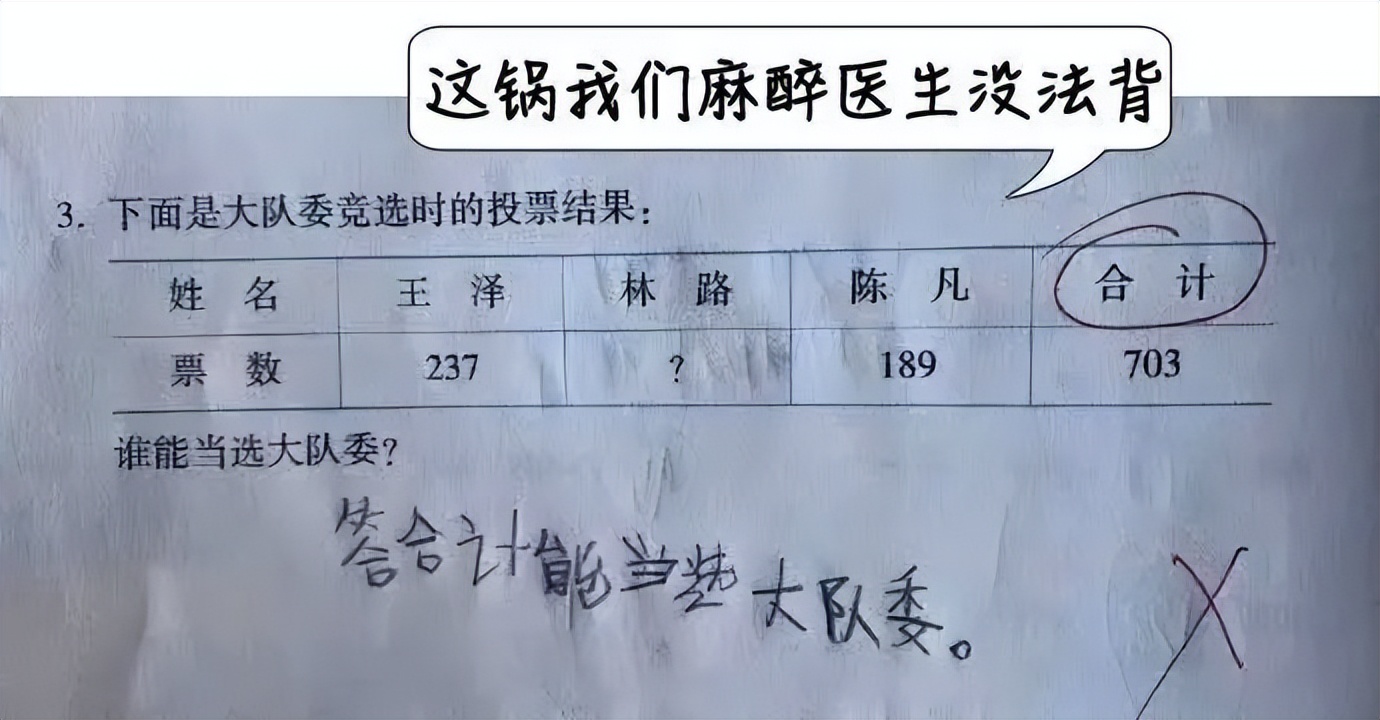 这锅我们麻醉医生没法背
3. 下面是大队委竞选时的投票结果：
姓 名 王 泽 林 路 陈 凡 合 计
票 数 237 ? 189 703
谁能当选大队委?
答合计能当选大队委。